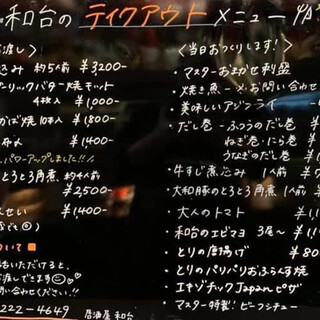 和台の テイクアウト メニュー
渡し〉
込み 約5人前 ¥3,200-
ーリックバター焼モット
4枚入 ¥1,000-
かば焼 10本入 ¥1,800-
¥1,400-
パワーアップしました!!
とろとろ角煮 約4人前
¥2,500-
せい ¥1,400-
ついて
話いただけると、
渡しできます
問い合わせください!!
222-4649 居酒屋 和台
〈当日おつくりします!〉
・マスターおまかせ刺盛
・焼き魚 -メ-お問い合わせ
・美味しいアジフライ
・だし巻 -ふつうのだし巻
ねぎ巻・にら巻 ¥
うなぎのだし巻 ¥1
・牛すじ煮込み 1人前
・大和豚のとろとろ角煮 1人前
・大人のトマト ¥1
・和台のエビマヨ 3尾〜 ¥1,1
・とりの唐揚げ ¥80
・とりのパリパリおふらんす焼
・エキゾチックJapanピザ
・マスター特製!ビーフシチュー